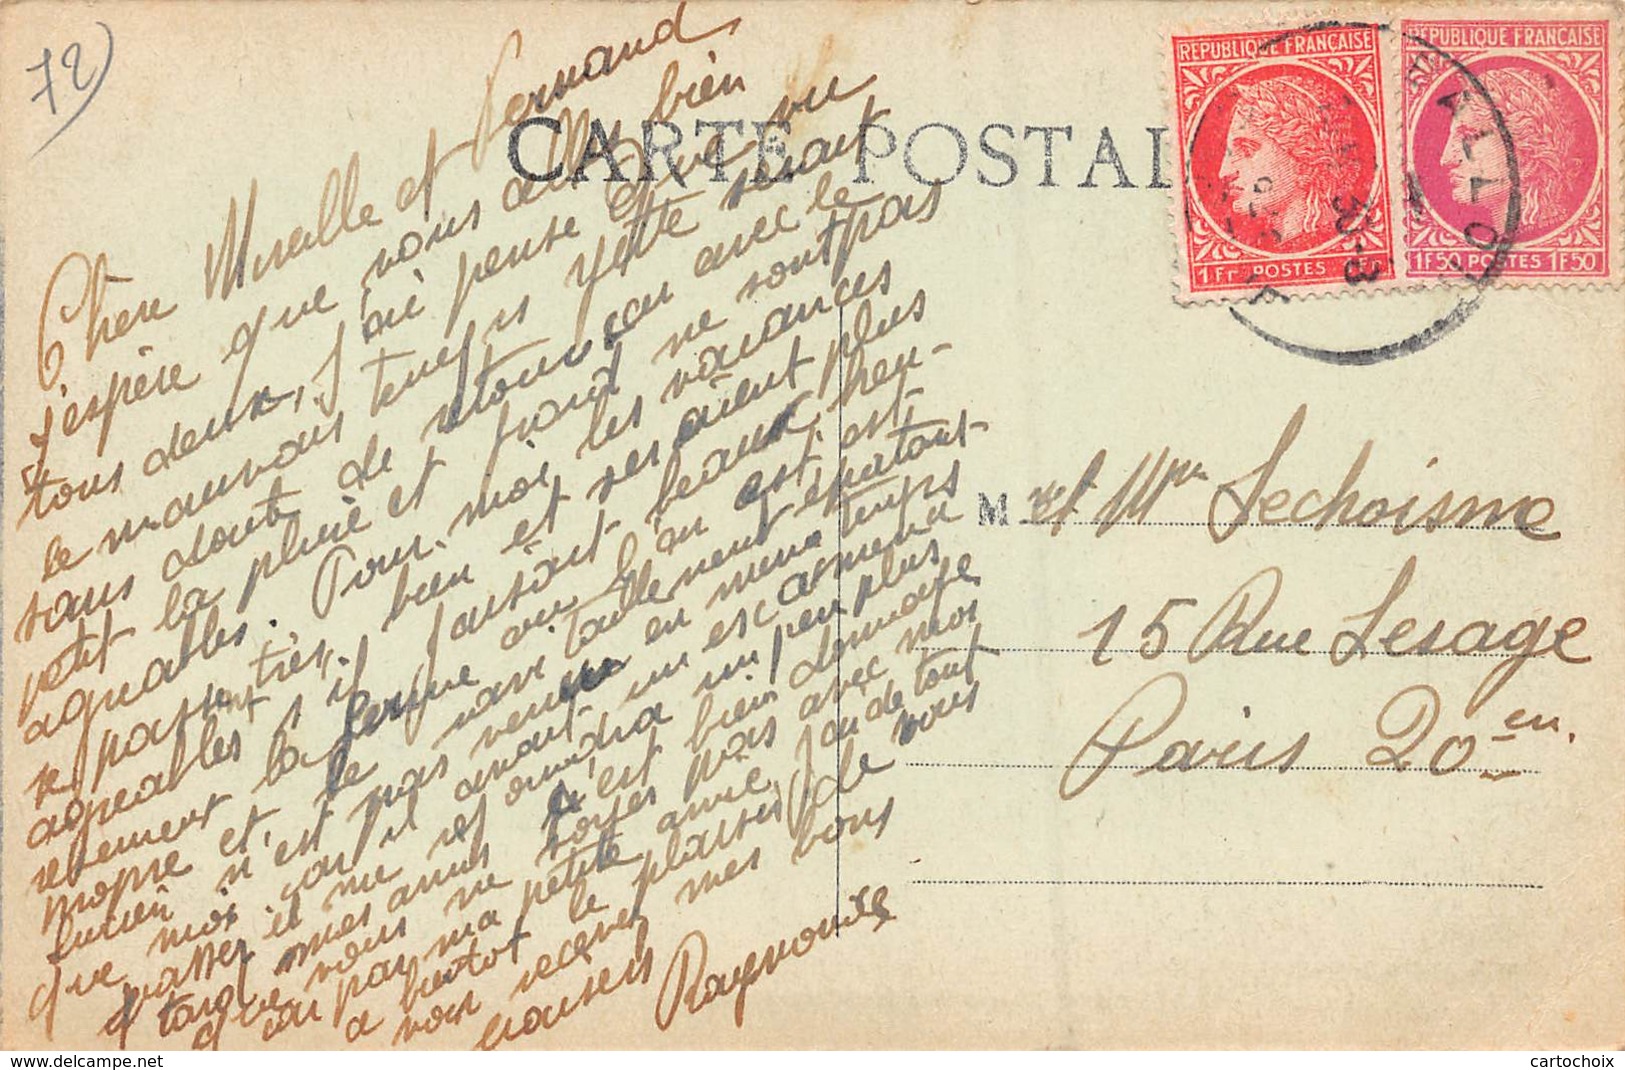 72
CARTE POSTALE
REPUBLIQUE FRANÇAISE
1 Fr POSTES 1 Fr
REPUBLIQUE FRANÇAISE
1F50 POSTES 1F50
BALLO
30-8
Chère Mireille et Fernand
j'espère que vous allez bien
tous deux, j'ai pensé que vu
le mauvais temps yette serait
sans doute de retour car avec le
petit la pluie et froid ne sont pas
agréables. Pour moi les vacances
se passent très bien et seraient plus
agréables s'il faisait beau, heu-
reusement la ferme où l'on est, est
propre et le
Lucien n'est pas venu en même temps
que moi car il avait un
passer il me
tard mes amis c'est bien dommage
que vous ne soyez pas avec moi
car par ma petite amie, j'ai de tout
a bientôt le plaisir de vous
voir recevez mes bons
baisers Raymonde
M et Mme Lechoisme
15 Rue Lesage
Paris 20em.
delcampe.net
cartochoix